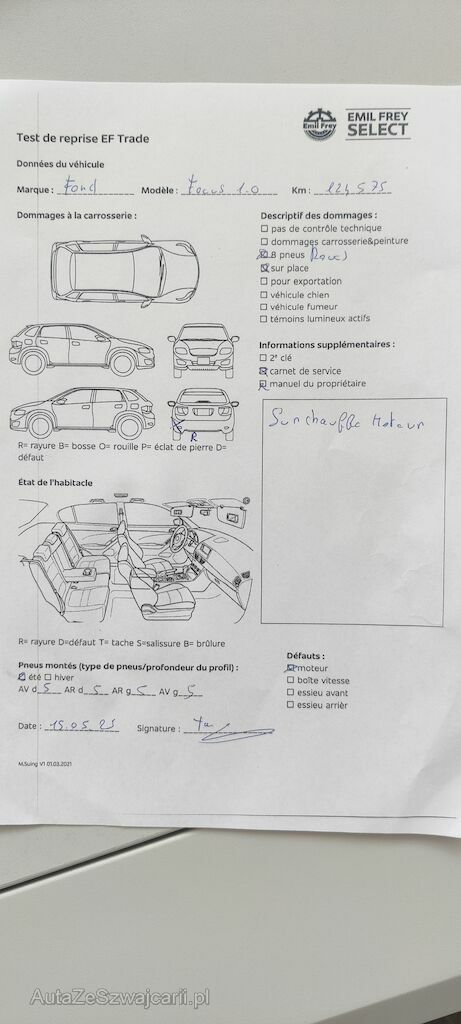 Emil Frey
EMIL FREY
SELECT
Test de reprise EF Trade
Données du véhicule
Marque : Ford Modèle : Focus 1.0 Km : 124575
Dommages à la carrosserie :
R
R= rayure B= bosse O= rouille P= éclat de pierre D=
défaut
Descriptif des dommages :
pas de contrôle technique
dommages carrosserie&peinture
8 pneus
sur place
pour exportation
véhicule chien
véhicule fumeur
témoins lumineux actifs
Informations supplémentaires :
2° clé
carnet de service
manuel du propriétaire
Surchauffe Moteur
État de l'habitacle
R= rayure D=défaut T= tache S=salissure B= brûlure
Pneus montés (type de pneus/profondeur du profil) :
été hiver
AV d 5 AR d 5 AR g 5 AV g 5
Défauts :
moteur
boîte vitesse
essieu avant
essieu arrièr
Date : 15.05.23 Signature :
M.Suing V1 01.03.2021
AutaZeSzwajcarii.pl